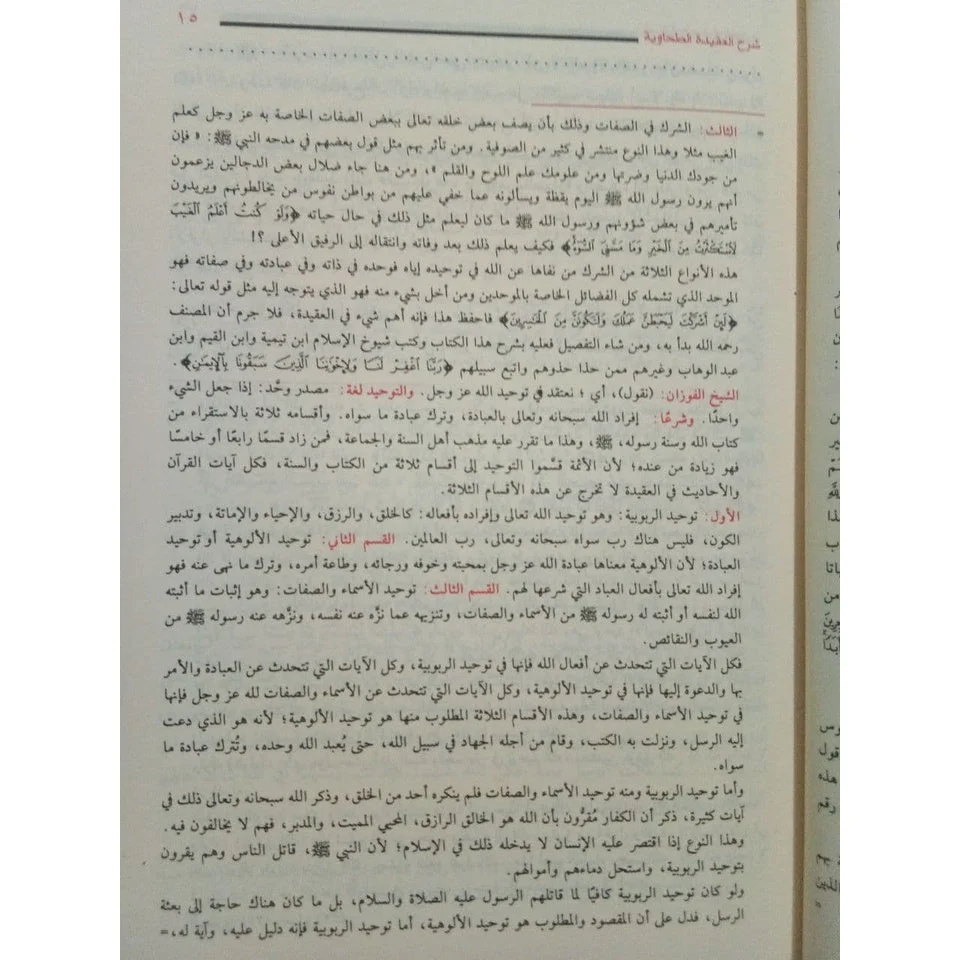 شرح العقيدة الطحاوية ١٥
= الثالث: الشرك في الصفات وذلك بأن يصف بعض خلقه تعالى ببعض الصفات الخاصة به عز وجل كعلم
الغيب مثلا وهذا النوع منتشر في كثير من الصوفية. ومن تأثر بهم مثل قول بعضهم في مدحه النبي ﷺ: « فإن
من جودك الدنيا وضرتها ومن علومك علم اللوح والقلم »، ومن هنا جاء ضلال بعض الدجالين يزعمون
أنهم يرون رسول الله ﷺ اليوم يقظة ويسألونه عما خفي عليهم من بواطن نفوس من يخالطونهم ويريدون
تأميرهم في بعض شؤونهم ورسول الله ﷺ ما كان ليعلم مثل ذلك في حال حياته ﴿وَلَوْ كُنتُ أَعْلَمُ ٱلْغَيْبَ
لَٱسْتَكْثَرْتُ مِنَ ٱلْخَيْرِ وَمَا مَسَّنِيَ ٱلسُّوٓءُ﴾ فكيف يعلم ذلك بعد وفاته وانتقاله إلى الرفيق الأعلى ؟!
هذه الأنواع الثلاثة من الشرك من نفاها عن الله في توحيده إياه فوحده في ذاته وفي عبادته وفي صفاته فهو
الموحد الذي تشمله كل الفضائل الخاصة بالموحدين ومن أخل بشيء منه فهو الذي يتوجه إليه مثل قوله تعالى:
﴿لَئِنْ أَشْرَكْتَ لَيَحْبَطَنَّ عَمَلُكَ وَلَتَكُونَنَّ مِنَ ٱلْخَٰسِرِينَ﴾ فاحفظ هذا فإنه أهم شيء في العقيدة، فلا جرم أن المصنف
رحمه الله بدأ به، ومن شاء التفصيل فعليه بشرح هذا الكتاب وكتب شيوخ الإسلام ابن تيمية وابن القيم وابن
عبد الوهاب وغيرهم ممن حذا حذوهم واتبع سبيلهم ﴿رَبَّنَا ٱغْفِرْ لَنَا وَلِإِخْوَٰنِنَا ٱلَّذِينَ سَبَقُونَا بِٱلْإِيمَٰنِ﴾.
الشيخ الفوزان: (نقول)، أي ؛ نعتقد في توحيد الله عز وجل. والتوحيد لغة: مصدر وحَّد: إذا جعل الشيء
واحدًا. وشرعًا: إفراد الله سبحانه وتعالى بالعبادة، وترك عبادة ما سواه. وأقسامه ثلاثة بالاستقراء من
كتاب الله وسنة رسوله، ﷺ، وهذا ما تقرر عليه مذهب أهل السنة والجماعة، فمن زاد قسمًا رابعًا أو خامسًا
فهو زيادة من عنده؛ لأن الأئمة قسَّموا التوحيد إلى أقسام ثلاثة من الكتاب والسنة، فكل آيات القرآن
والأحاديث في العقيدة لا تخرج عن هذه الأقسام الثلاثة.
الأول: توحيد الربوبية: وهو توحيد الله تعالى وإفراده بأفعاله: كالخلق، والرزق، والإحياء والإماتة، وتدبير
الكون، فليس هناك رب سواه سبحانه وتعالى، رب العالمين. القسم الثاني: توحيد الألوهية أو توحيد
العبادة؛ لأن الألوهية معناها عبادة الله عز وجل بمحبته وخوفه ورجائه، وطاعة أمره، وترك ما نهى عنه فهو
إفراد الله تعالى بأفعال العباد التي شرعها لهم. القسم الثالث: توحيد الأسماء والصفات: وهو إثبات ما أثبته
الله لنفسه أو أثبته له رسوله ﷺ من الأسماء والصفات، وتنزيهه عما نزَّه عنه نفسه، ونزَّهه عنه رسوله ﷺ من
العيوب والنقائص.
فكل الآيات التي تتحدث عن أفعال الله فإنها في توحيد الربوبية، وكل الآيات التي تتحدث عن العبادة والأمر
بها والدعوة إليها فإنها في توحيد الألوهية، وكل الآيات التي تتحدث عن الأسماء والصفات لله عز وجل فإنها
في توحيد الأسماء والصفات، وهذه الأقسام الثلاثة المطلوب منها هو توحيد الألوهية؛ لأنه هو الذي دعت
إليه الرسل، ونزلت به الكتب، وقام من أجله الجهاد في سبيل الله، حتى يُعبد الله وحده، وتُترك عبادة ما
سواه.
وأما توحيد الربوبية ومنه توحيد الأسماء والصفات فلم ينكره أحد من الخلق، وذكر الله سبحانه وتعالى ذلك في
آيات كثيرة، ذكر أن الكفار مُقرُّون بأن الله هو الخالق الرازق، المحيي المميت، والمدبر، فهم لا يخالفون فيه.
وهذا النوع إذا اقتصر عليه الإنسان لا يدخله ذلك في الإسلام؛ لأن النبي ﷺ، قاتل الناس وهم يقرون
بتوحيد الربوبية، واستحل دماءهم وأموالهم.
ولو كان توحيد الربوبية كافيًا لما قاتلهم الرسول عليه الصلاة والسلام، بل ما كان هناك حاجة إلى بعثة
الرسل، فدل على أن المقصود والمطلوب هو توحيد الألوهية، أما توحيد الربوبية فإنه دليل عليه، وآية له،=